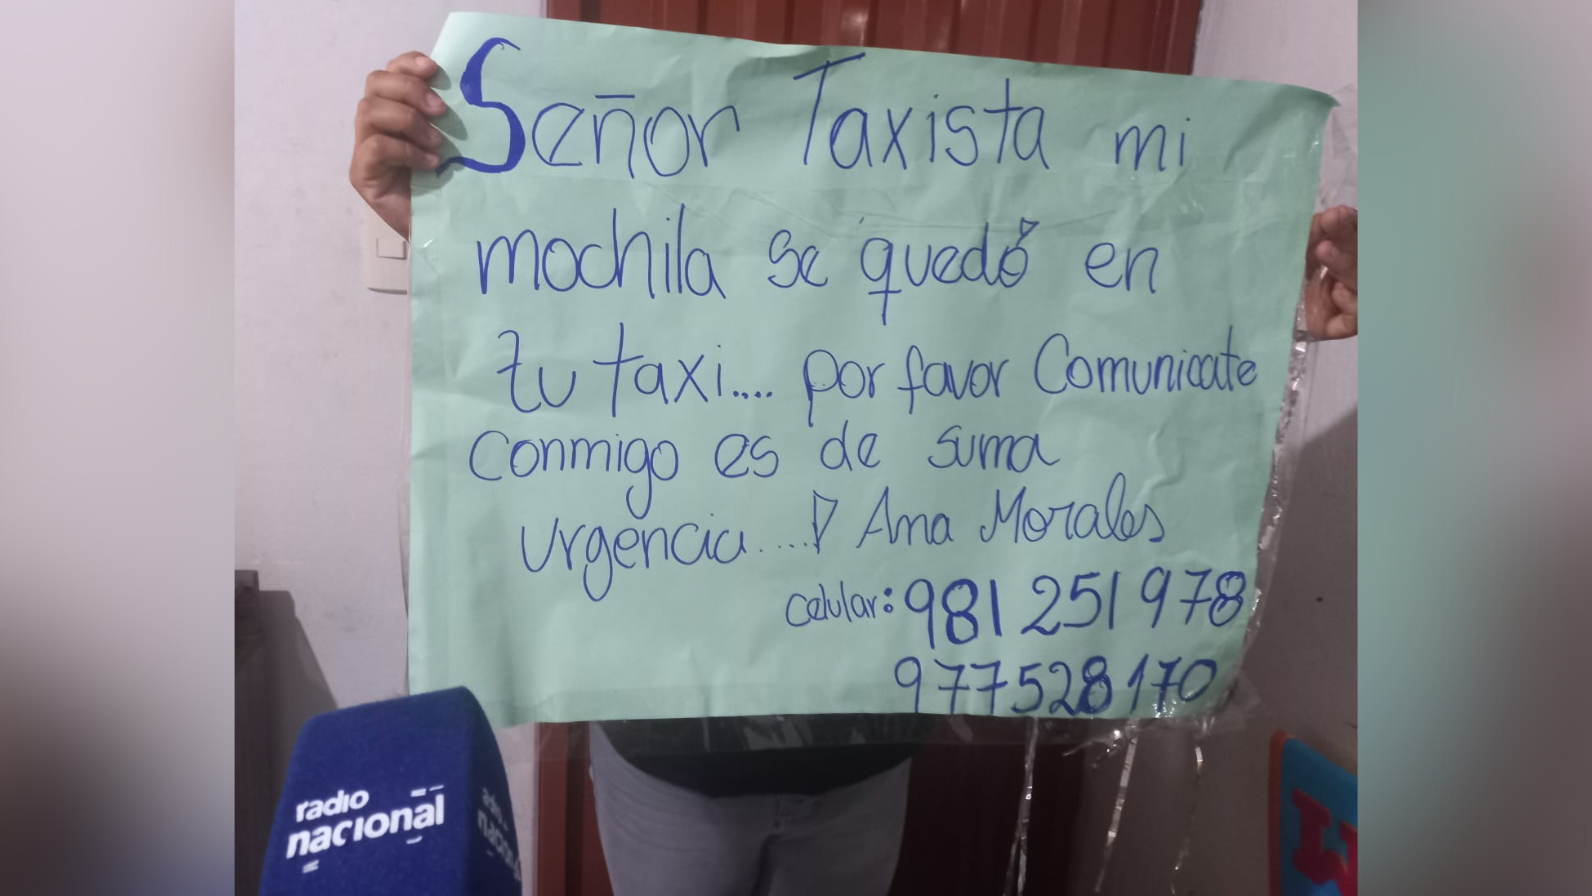 Señor Taxista mi
mochila se quedó en
tu taxi.... por favor Comunicate
conmigo es de suma
urgencia.....! Ana Morales
celular: 981 251 978
977528170
radio
nacional